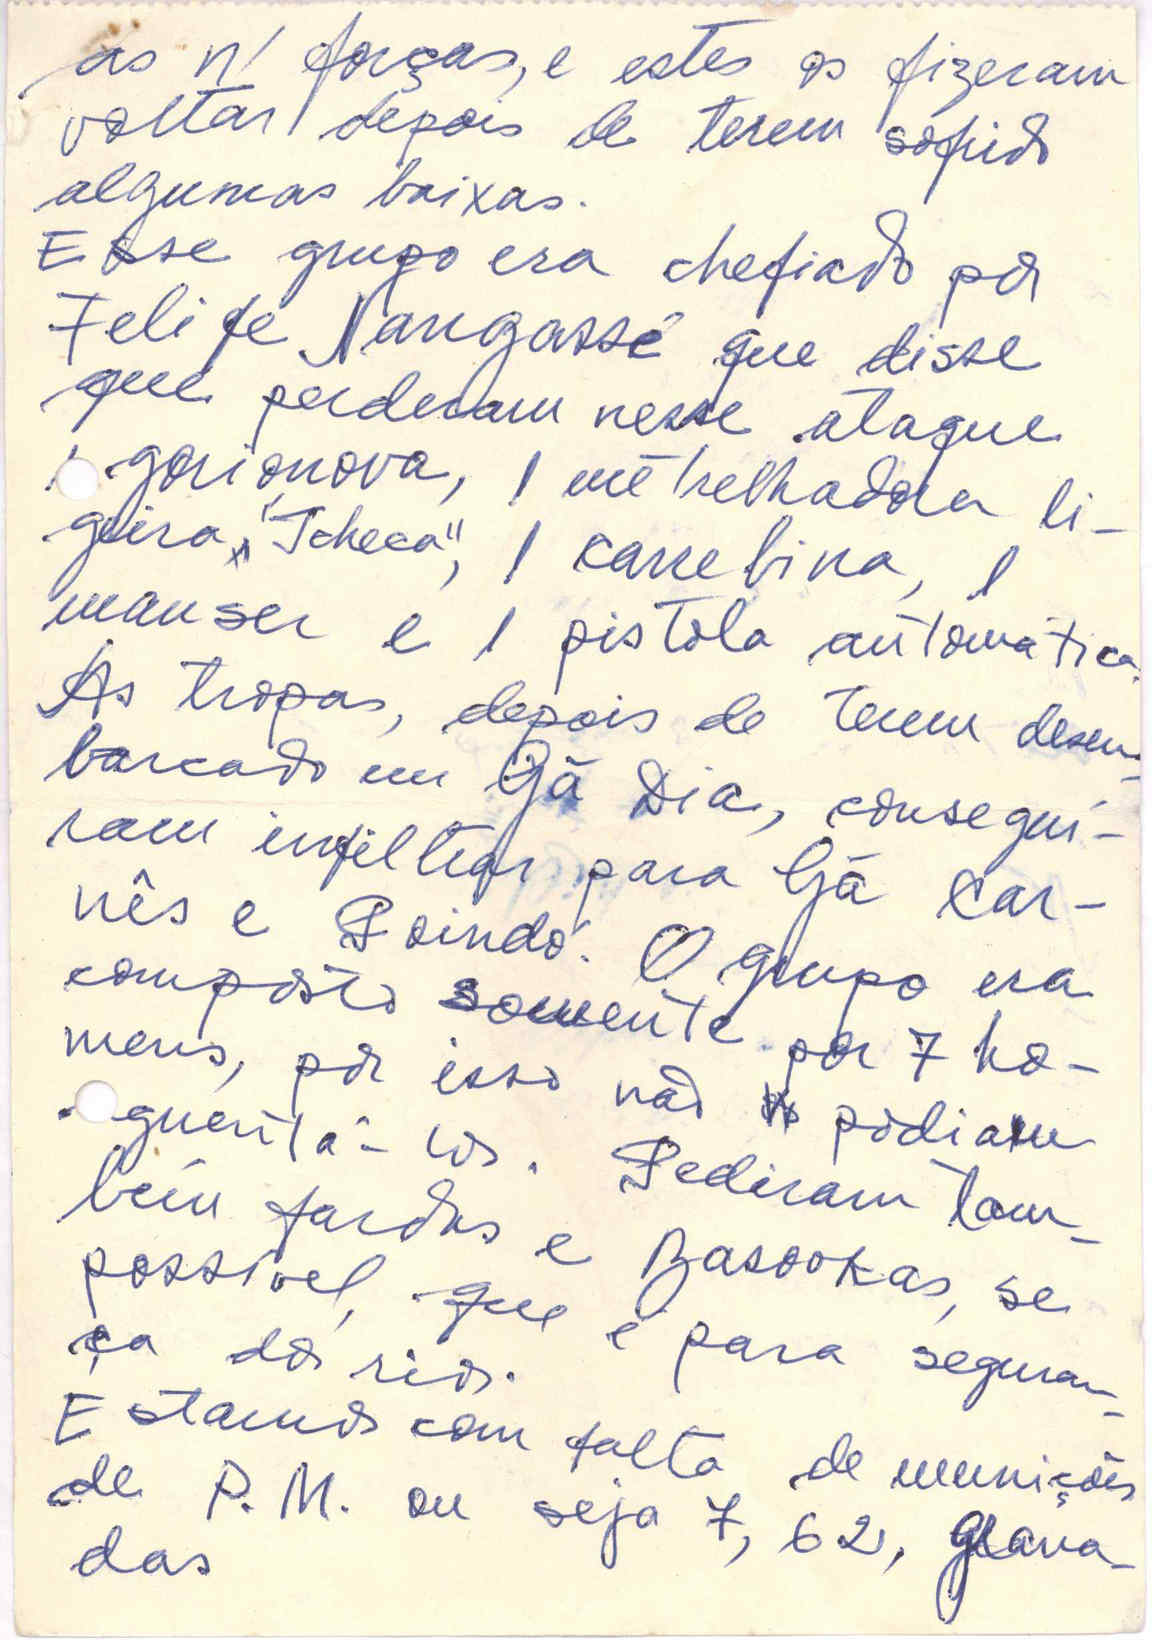 as n/ forças, e estes os fizeram
voltar depois de terem sofrido
algumas baixas.
Esse grupo era chefiado por
Felife Nangassé que disse
que perderam nesse ataque
1 gorionova, 1 metrelhadora li-
geira "Tcheca", 1 carrebina, 1
mauser e 1 pistola automática.
As tropas, depois de terem desem-
barcado em Gã Dia, consegui-
ram infiltrar para Gã Car-
nês e Poindó. O grupo era
composto somente por 7 ho-
mens, por isso não podiam
aguentá-los. Pediram tam-
bém fardas e Basookas, se
possível, que é para seguran-
ça dos rios.
Estamos com falta de munições
de P.M. ou seja 7,62, grana-
das